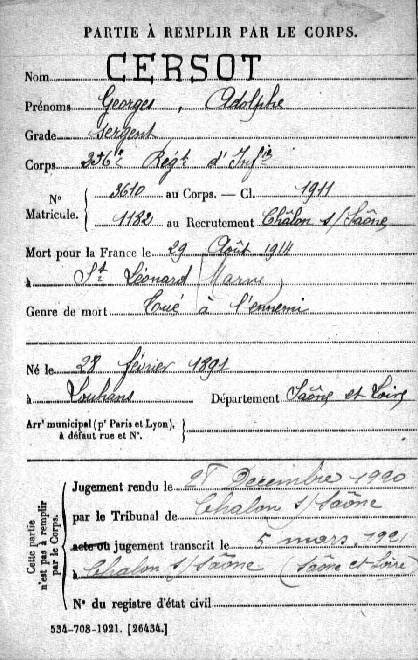 PARTIE À REMPLIR PAR LE CORPS.
Nom CERSOT
Prénoms Georges, Adolphe
Grade Sergent
Corps 356e Régt d'Infie
N° Matricule. { 3610 au Corps. — Cl. 1911
1182 au Recrutement Châlon s/Saône
Mort pour la France le 29 Août 1914
à St Léonard (Marne)
Genre de mort Tué à l'ennemi
Né le 28 février 1891
à Louhans Département Saône et Loire
Arrt municipal (pr Paris et Lyon), à défaut rue et N°. {
Cette partie n'est pas à remplir par le Corps.
Jugement rendu le Decembre 1920
par le Tribunal de Chalon s/Saône
acte ou jugement transcrit le 5 mars 1921
à Chalon s/Saône (Saône et Loire)
N° du registre d'état civil
534-708-1921. [26434.]